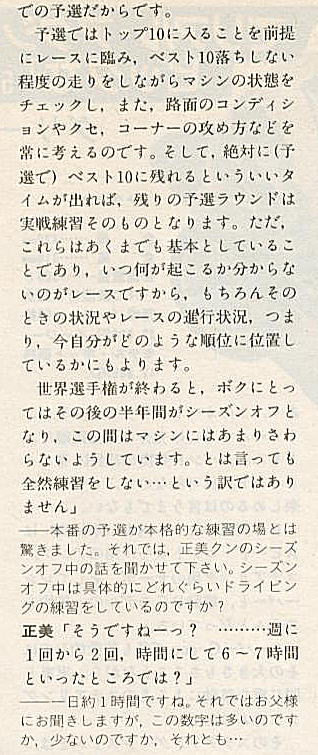 での予選だからです。
　予選ではトップ10に入ることを前提
にレースに臨み，ベスト10落ちしない
程度の走りをしながらマシンの状態を
チェックし，また，路面のコンディシ
ョンやクセ，コーナーの攻め方などを
常に考えるのです。そして，絶対に(予
選で）ベスト10に残れるといういいタ
イムが出れば，残りの予選ラウンドは
実戦練習そのものとなります。ただ，
これらはあくまでも基本としているこ
とであり，いつ何が起こるか分からな
いのがレースですから，もちろんその
ときの状況やレースの進行状況，つま
り，今自分がどのような順位に位置し
ているかにもよります。
　世界選手権が終わると，ボクにとっ
てはその後の半年間がシーズンオフと
なり，この間はマシンにはあまりさわ
らないようしています。とは言っても
全然練習をしない…という訳ではあり
ません」
――本番の予選が本格的な練習の場とは
驚きました。それでは，正美クンのシーズ
ンオフ中の話を聞かせて下さい。シーズン
オフ中は具体的にどれぐらいドライビン
グの練習をしているのですか？
正美「そうですねーっ？　………週に
1回から2回，時間にして6～7時間
といったところでは？」
――一日約1時間ですね。それではお父様
にお聞きしますが，この数字は多いのです
か，少ないのですか，それとも…